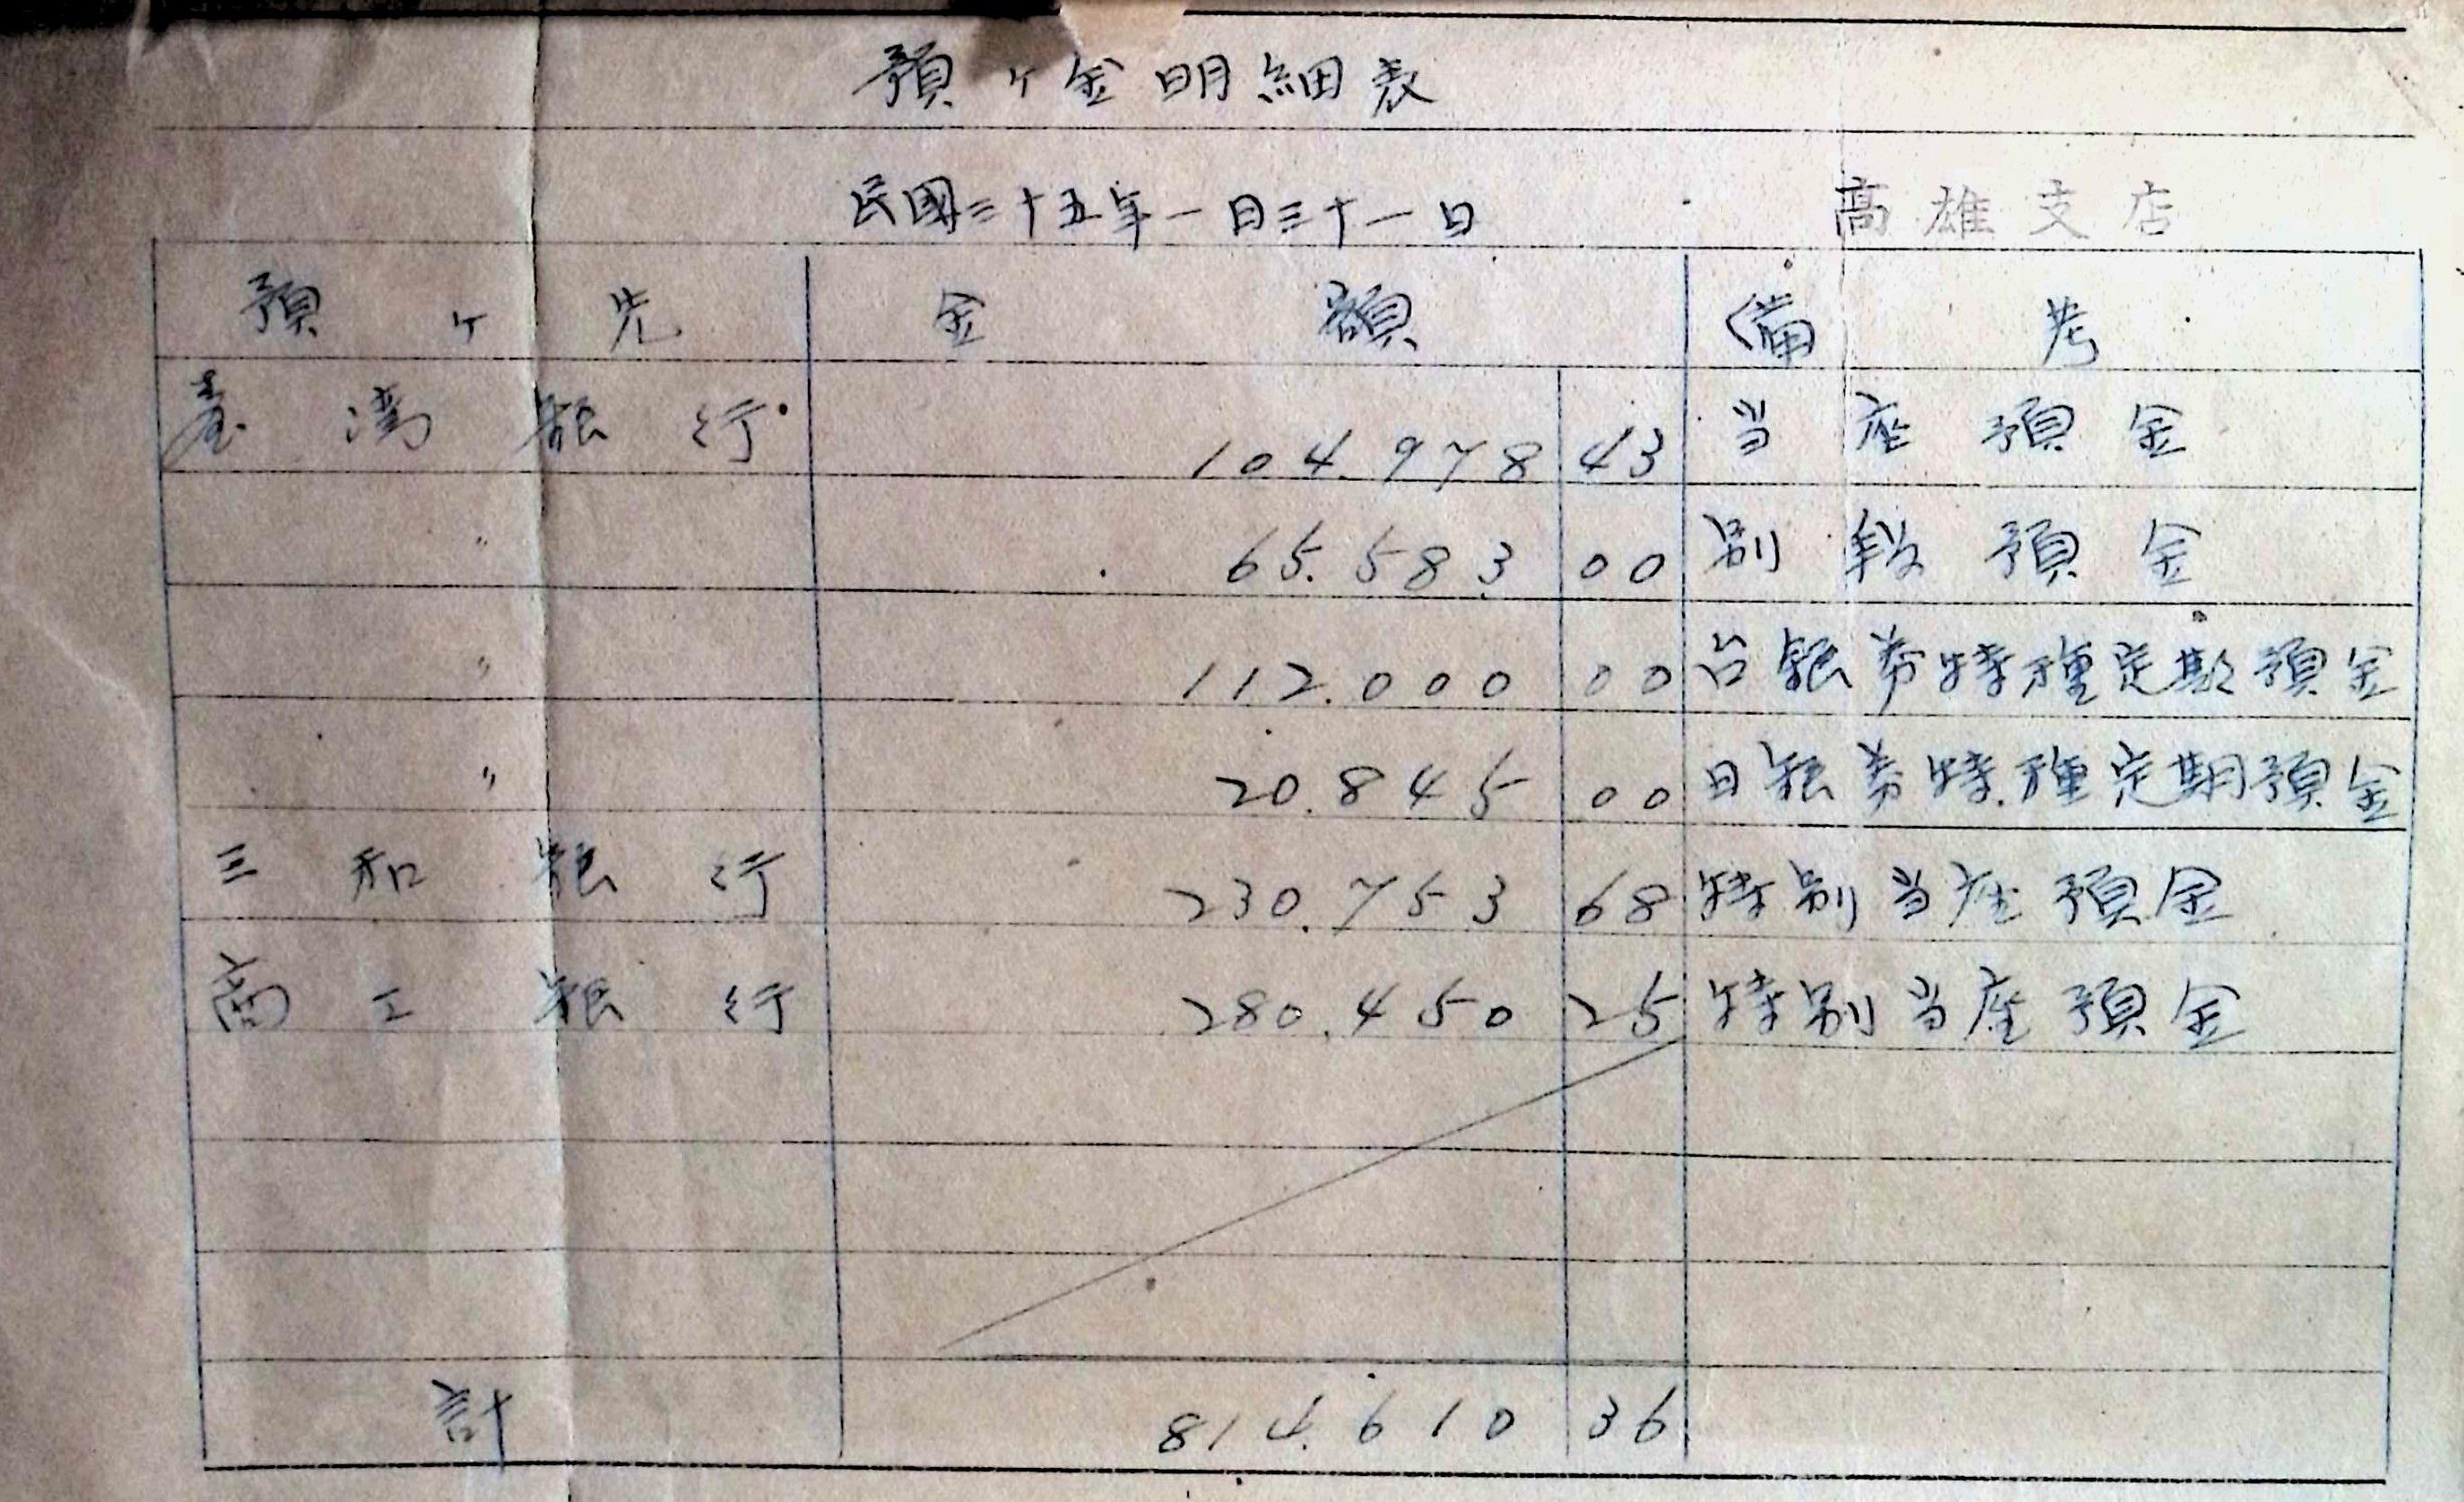 預ヶ金明細表
民國三十五年一月三十一日 高雄支店
預ヶ先 金額 備考
臺湾銀行 104.978 43 当座預金
〃 65.583 00 別段預金
〃 112.000 00 台銀券特種定期預金
〃 20.845 00 日銀券特種定期預金
三和銀行 230.753 68 特別当座預金
商工銀行 280.450 25 特別当座預金
計 814.610 36